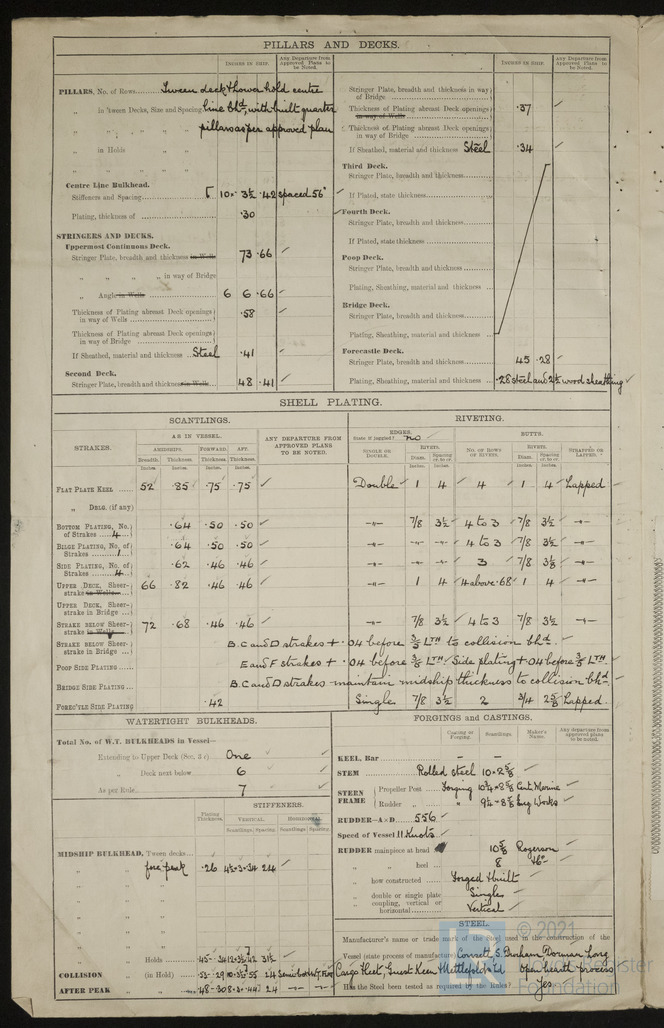 PILLARS AND DECKS.
INCHES IN SHIP.
Any Departure from Approved Plans to be Noted.
PILLARS, No. of Rows Tween deck & Lower hold centre
„ in 'tween Decks, Size and Spacing line bhd, with built quarter
„ „ „ „ pillars as per approved plan
„ in Holds „ „
„ „ „ „
Centre Line Bulkhead.
Stiffeners and Spacing 10 · 3½ · 42 spaced 56"
Plating, thickness of ·30
STRINGERS AND DECKS.
Uppermost Continuous Deck.
Stringer Plate, breadth and thickness in Wells 73 · 66
„ „ „ „ in way of Bridge
„ Angle in Wells 6 6 · 66
Thickness of Plating abreast Deck openings in way of Wells ·58
Thickness of Plating abreast Deck openings in way of Bridge
If Sheathed, material and thickness Steel ·41
Second Deck.
Stringer Plate, breadth and thickness in Wells 48 · 41
INCHES IN SHIP.
Any Departure from Approved Plans to be Noted.
Stringer Plate, breadth and thickness in way of Bridge
Thickness of Plating abreast Deck openings in way of Wells ·37
Thickness of Plating abreast Deck openings in way of Bridge
If Sheathed, material and thickness Steel ·34
Third Deck.
Stringer Plate, breadth and thickness
If Plated, state thickness
Fourth Deck.
Stringer Plate, breadth and thickness
If Plated, state thickness
Poop Deck.
Stringer Plate, breadth and thickness
Plating, Sheathing, material and thickness
Bridge Deck.
Stringer Plate, breadth and thickness
Plating, Sheathing, material and thickness
Forecastle Deck.
Stringer Plate, breadth and thickness 45 · 28
Plating, Sheathing, material and thickness ·28 steel and 2½ wood sheathing
SHELL PLATING.
SCANTLINGS. RIVETING.
STRAKES.
AS IN VESSEL.
AMIDSHIPS. FORWARD. AFT.
Breadth. Thickness. Thickness. Thickness.
Inches. Inches. Inches. Inches.
ANY DEPARTURE FROM APPROVED PLANS TO BE NOTED.
EDGES. State if joggled? no
SINGLE OR DOUBLE.
RIVETS. Diam. Spacing cr. to cr.
Inches. Inches.
BUTTS.
No. OF ROWS OF RIVETS.
RIVETS. Diam. Spacing cr. to cr.
Inches. Inches.
STRAPPED OR LAPPED.
FLAT PLATE KEEL 52 ·85 ·75 ·75 Double 1 4 4 1 4 Lapped
„ DBLG. (if any)
BOTTOM PLATING, No. of Strakes 4 ·64 ·50 ·50 -"- 7/8 3½ 4 to 3 7/8 3½ -"-
BILGE PLATING, No. of Strakes 1 ·64 ·50 ·50 -"- -"- -"- 4 to 3 7/8 3½ -"-
SIDE PLATING, No. of Strakes 4 ·62 ·46 ·46 -"- -"- -"- 3 7/8 3⅛ -"-
UPPER DECK, Sheerstrake in Wells 66 ·82 ·46 ·46 -"- 1 4 4 above ·68 1 4 -"-
UPPER DECK, Sheerstrake in Bridge
STRAKE BELOW Sheerstrake in Wells 72 ·68 ·46 ·46 -"- 7/8 3½ 4 to 3 7/8 3½ -"-
STRAKE BELOW Sheerstrake in Bridge B.C and D strakes + ·04 before ⅗ Lth to collision bhd.
POOP SIDE PLATING E and F strakes + ·04 before ⅗ Lth. Side plating + ·04 before ⅗ Lth.
BRIDGE SIDE PLATING B.C and D strakes maintain midship thickness to collision bhd.
FOREC'TLE SIDE PLATING ·42 Single 7/8 3½ 2 ¾ 2⅝ Lapped.
WATERTIGHT BULKHEADS.
Total No. of W.T. BULKHEADS in Vessel—
Extending to Upper Deck (Sec. 3 c) One
„ Deck next below 6
As per Rule 7
Plating Thickness.
STIFFENERS.
VERTICAL. HORIZONTAL.
Scantlings. Spacing. Scantlings. Spacing.
MIDSHIP BULKHEAD, Tween decks
„ fore peak ·26 4½·3·34 24
„ „
„ „
„ „
„ „
„ „
„ Holds 31½
COLLISION „ (in Hold) 24
AFTER PEAK „ „ 24 -"- -"-
FORGINGS and CASTINGS.
Casting or Forging. Scantlings. Maker's Name. Any departure from approved plans to be noted.
KEEL, Bar – –
STEM Rolled steel 10 × 2⅝
STERN FRAME { Propeller Post Forging 10¾ × 8⅝ Cent. Marine
{ Rudder „ „ 9¼ × 8⅝ Eng Works
RUDDER—A × D 556
Speed of Vessel 11 Knots
RUDDER mainpiece at head 10⅝ Rogerson
„ „ heel 8 & Co
„ how constructed Forged & built
„ double or single plate Single
„ coupling, vertical or horizontal Vertical
STEEL.
Manufacturer's name or trade mark of the Steel used in the construction of the
Vessel (state process of manufacture) Consett, S. Durham, Dorman Long
Cargo Fleet, Guest Keen & Nettlefolds Ld Open hearth process
Has the Steel been tested as required by the Rules? Yes
© 2021
Lloyd's Register
Foundation